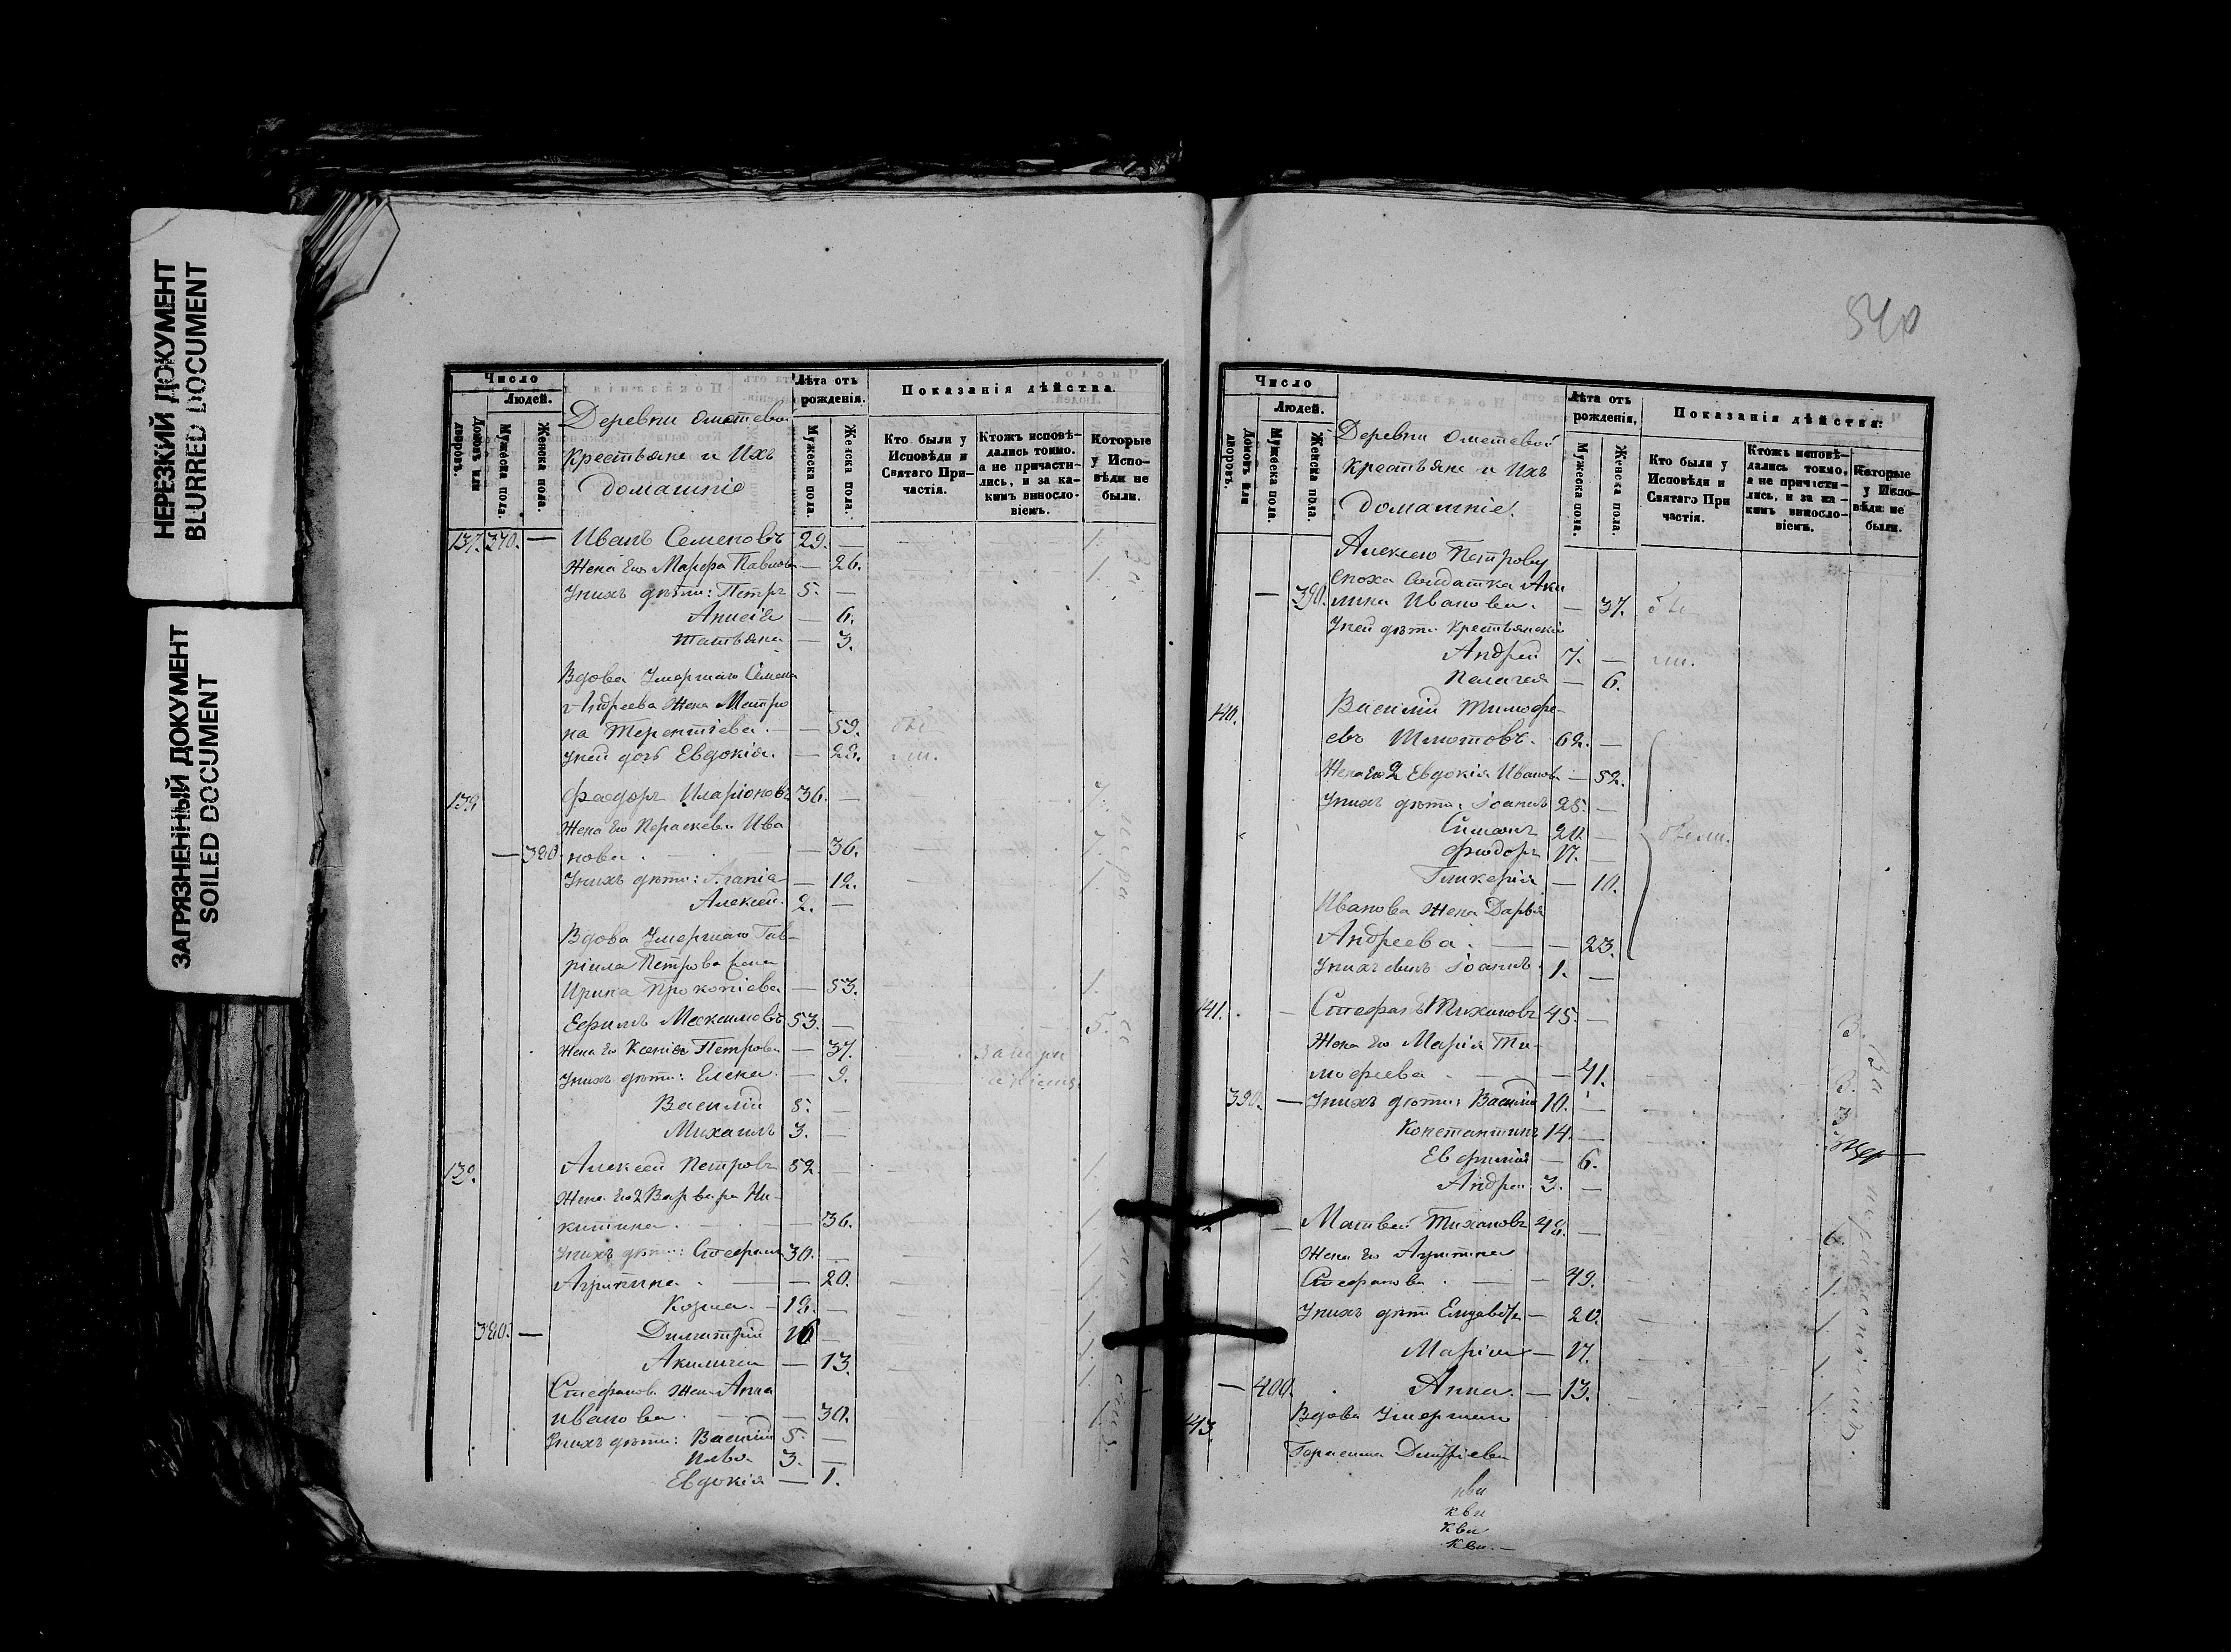 НЕРЕЗКИЙ ДОКУМЕНТ
BLURRED DOCUMENT
ЗАГРЯЗНЕННЫЙ ДОКУМЕНТ
SOILED DOCUMENT
Число
Людей.
Домовъ или дворовъ.
Мужеска пола.
Женска пола.
Деревни Ометевой
Крестьяне и Ихъ
домашніе
Лѣта отъ рожденія.
Мужеска пола.
Женска пола.
Показанія дѣйства.
Кто были у Исповѣди и Святаго Причастія.
Ктожъ исповѣдались токмо, а не причастились, и за какимъ винословіемъ.
Которые у Исповѣди не были.
137. 370. — Иванъ Семеновъ 29. — 1.
Жена Его Марфа Павлова — 26. 1.
Унихъ дѣти: Петръ 5. —
Анисія — 6.
Татьяна — 3.
Вдова Умершаго Семена
Андреева Жена Матро
на Терентіева. — 59.
Уней дочь Евдокія. — 29.
138 Феодоръ Иларіоновъ 36. —
Жена Его Параскева Ива
— 380 нова. — 36.
Унихъ дѣти: Агапія — 12.
Алексей. 2. —
Вдова Умершаго Гав-
ріила Петрова Жена
Ирина Прокопіева — 53. 1.
Ефимъ Максимовъ 53. — 5.
Жена Его Ксенія Петрова — 37.
Унихъ дѣти: Елена. — 9.
Василій 5. —
Михаилъ 3. —
139. Алексей Петровъ 52. — 1.
Жена Его 2 Варвара Ни-
китина. — 36. 1.
Унихъ дѣти: Стефанъ 30. — 1.
Агрипина. — 20. 1.
Козма. — 18. — 1.
380. — Димитрій 16 — 1.
Акилина — 13. 1.
Стефанова Жена Анна
Иванова. — 30. 1.
Унихъ дѣти: Василій 5. —
3. —
Евдокія — 1.
540
Число
Людей.
Домовъ или дворовъ.
Мужеска пола.
Женска пола.
Деревни Ометевой
Крестьяне и Ихъ
домашніе.
Лѣта отъ рожденія.
Мужеска пола.
Женска пола.
Показанія дѣйства:
Кто были у Исповѣди и Святаго Причастія.
Ктожъ исповѣдались токмо, а не причастились, и за какимъ винословіемъ.
Которые у Исповѣди не были.
Алексею Петрову
Сноха Солдатка Аки
— 390. лина Иванова. — 37.
Уней дѣти Крестьянскіе
Андрей 7. —
Пелагея — 6.
140. Василій Тимофе-
евъ 62. —
Жена Его 2 Евдокія Иванова — 52.
Унихъ дѣти: Іоаннъ 25. —
Симеонъ 20. —
Феодоръ 17. —
Гликерія — 10.
Иванова Жена Дарья
Андреева. — 23.
Унихъ сынъ Іоаннъ. 1. —
141. — Стефанъ Тихановъ 45. —
Жена Его Марія Ти-
мофеева — 41.
390. — Унихъ дѣти: Василій 10. —
Константинъ 14. —
Евфимія — 6.
Андрей 3. —
Матвей Тихановъ 48. —
Жена Его Агрипина
Стефанова. — 49. 1.
Унихъ дѣти Елизавета — 20. 1.
Марія — 17. 1.
— 400. Анна. — 13. 1.
143. Вдова Умершаго
Герасима Дмитріева
кви
кви
кви.